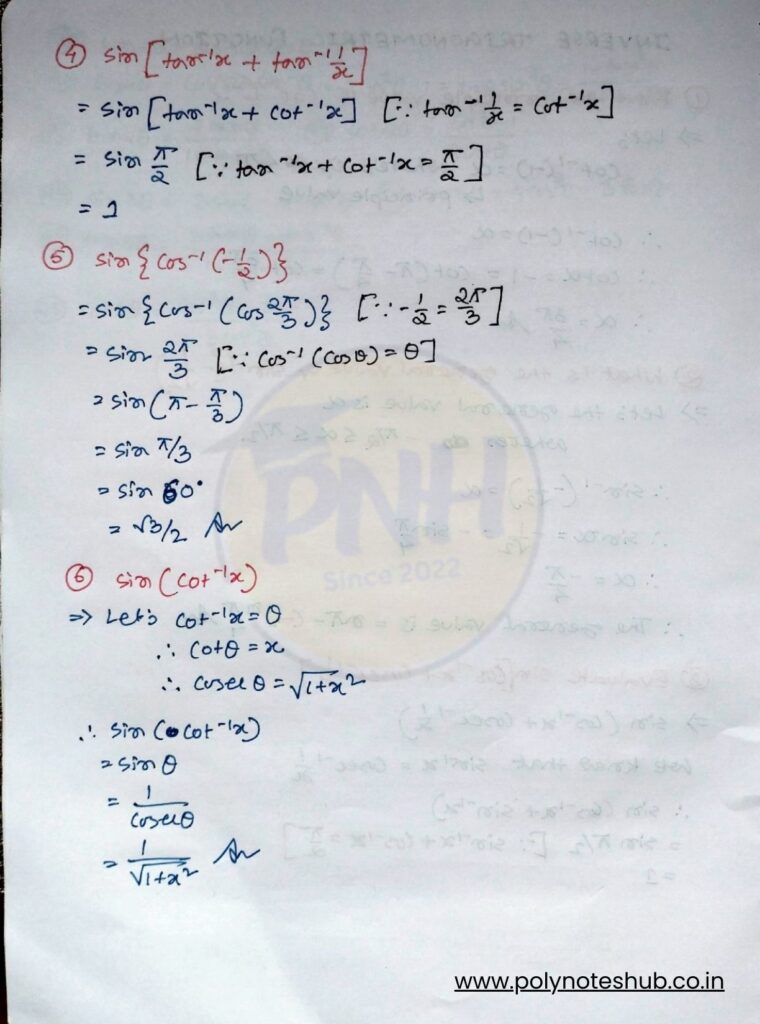 ④ sin[tan⁻¹x + tan⁻¹ 1/x]
= sin[tan⁻¹x + cot⁻¹x] [∵ tan⁻¹ 1/x = cot⁻¹x]
= sin π/2 [∵ tan⁻¹x + cot⁻¹x = π/2]
= 1
⑤ sin{cos⁻¹(-1/2)}
= sin{cos⁻¹(cos 2π/3)} [∵ -1/2 = 2π/3]
= sin 2π/3 [∵ cos⁻¹(cosθ) = θ]
= sin(π - π/3)
= sin π/3
= sin 60°
= √3/2 Ans
PNH
Since 2022
⑥ sin(cot⁻¹x)
⇒ Let's cot⁻¹x = θ
∴ cotθ = x
∴ cosecθ = √1+x²
∴ sin(cot⁻¹x)
= sinθ
= 1/cosecθ
= 1/√1+x² Ans
www.polynoteshub.co.in